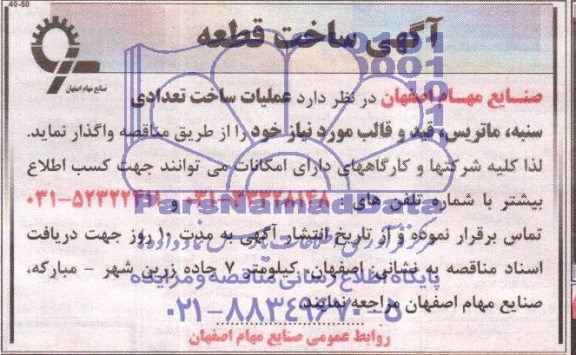 40-50
آگهی ساخت قطعه
صنایع مهام اصفهان
صنـایع مهـام اصفهان در نظر دارد عملیات ساخت تعدادی
سنبه، ماتریس، قید و قالب مورد نیاز خود را از طریق مناقصه واگذار نماید.
لذا کلیه شرکتها و کارگاههای دارای امکانات می توانند جهت کسب اطلاع
بیشتر با شماره تلفن های : و
تماس برقرار نموده و از تاریخ انتشار آگهی به مدت ۱۰ روز جهت دریافت
اسناد مناقصه به نشانی: اصفهان، کیلومتر ۷ جاده زرین شهر - مبارکه،
صنایع مهام اصفهان مراجعه نمایند.
روابط عمومی صنایع مهام اصفهان
ParsNamadData
پایگاه اطلاع رسانی مناقصه و مزایده
۰۲۱-۸۸۳۴۹۶۷۰-۵